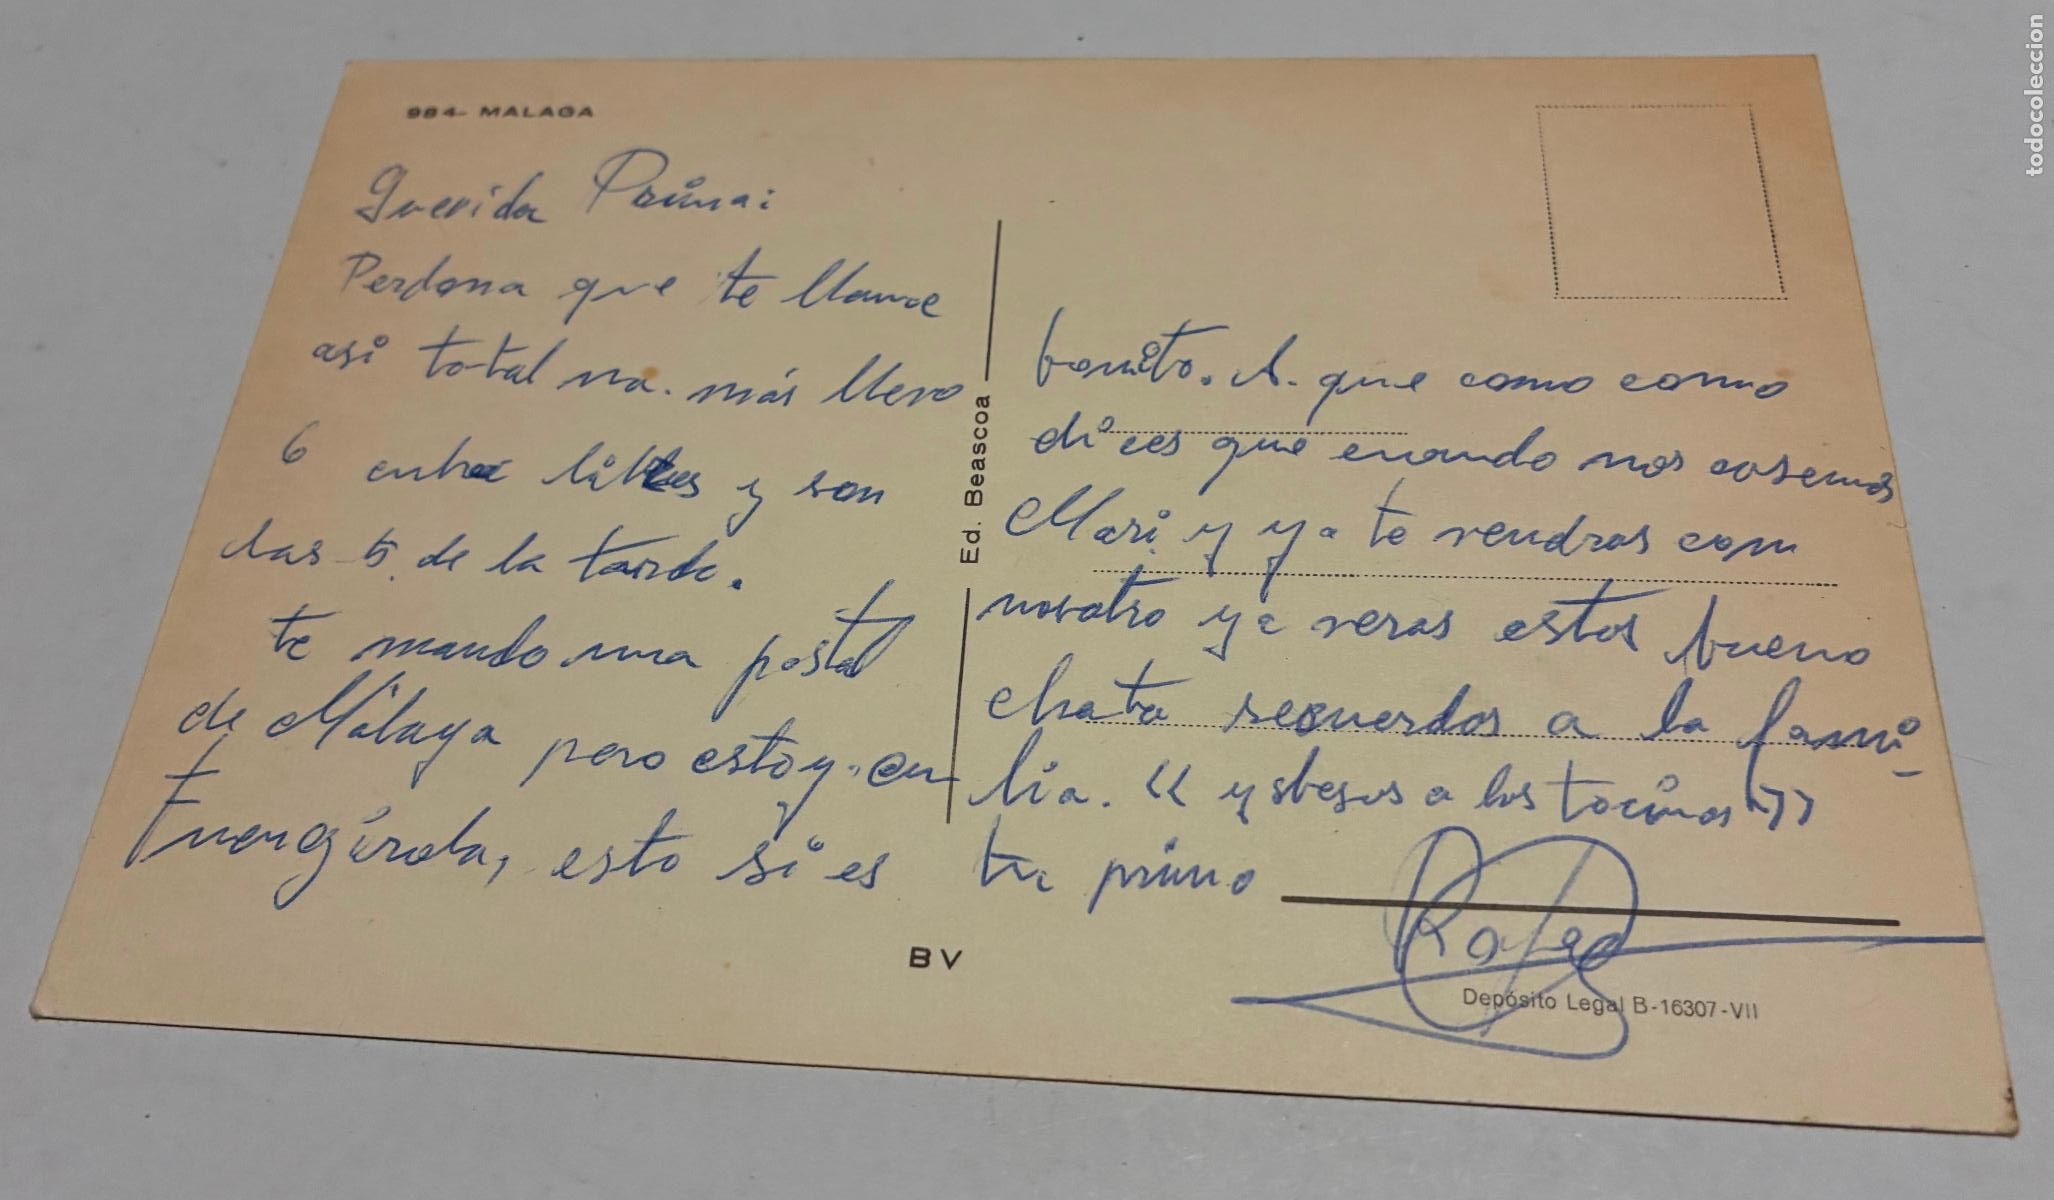 984- MALAGA
Querida Prima:
Perdona que te llame
asi total na. más llevo
6 entre y son
las 5 de la tarde.
te mando una postal
de Málaga pero estoy en
Fuengirola, esto si es
Ed. Beascoa
bonito. A. que como como
dices que cuando nos casemos
Mari y ya te vendras con
nosotro ya veras estos bueno
chata recuerdos a la fami-
lia. << y besos a los tocinos >>
tu primo
Rafa
BV
Depósito Legal B-16307-VII
todocoleccion